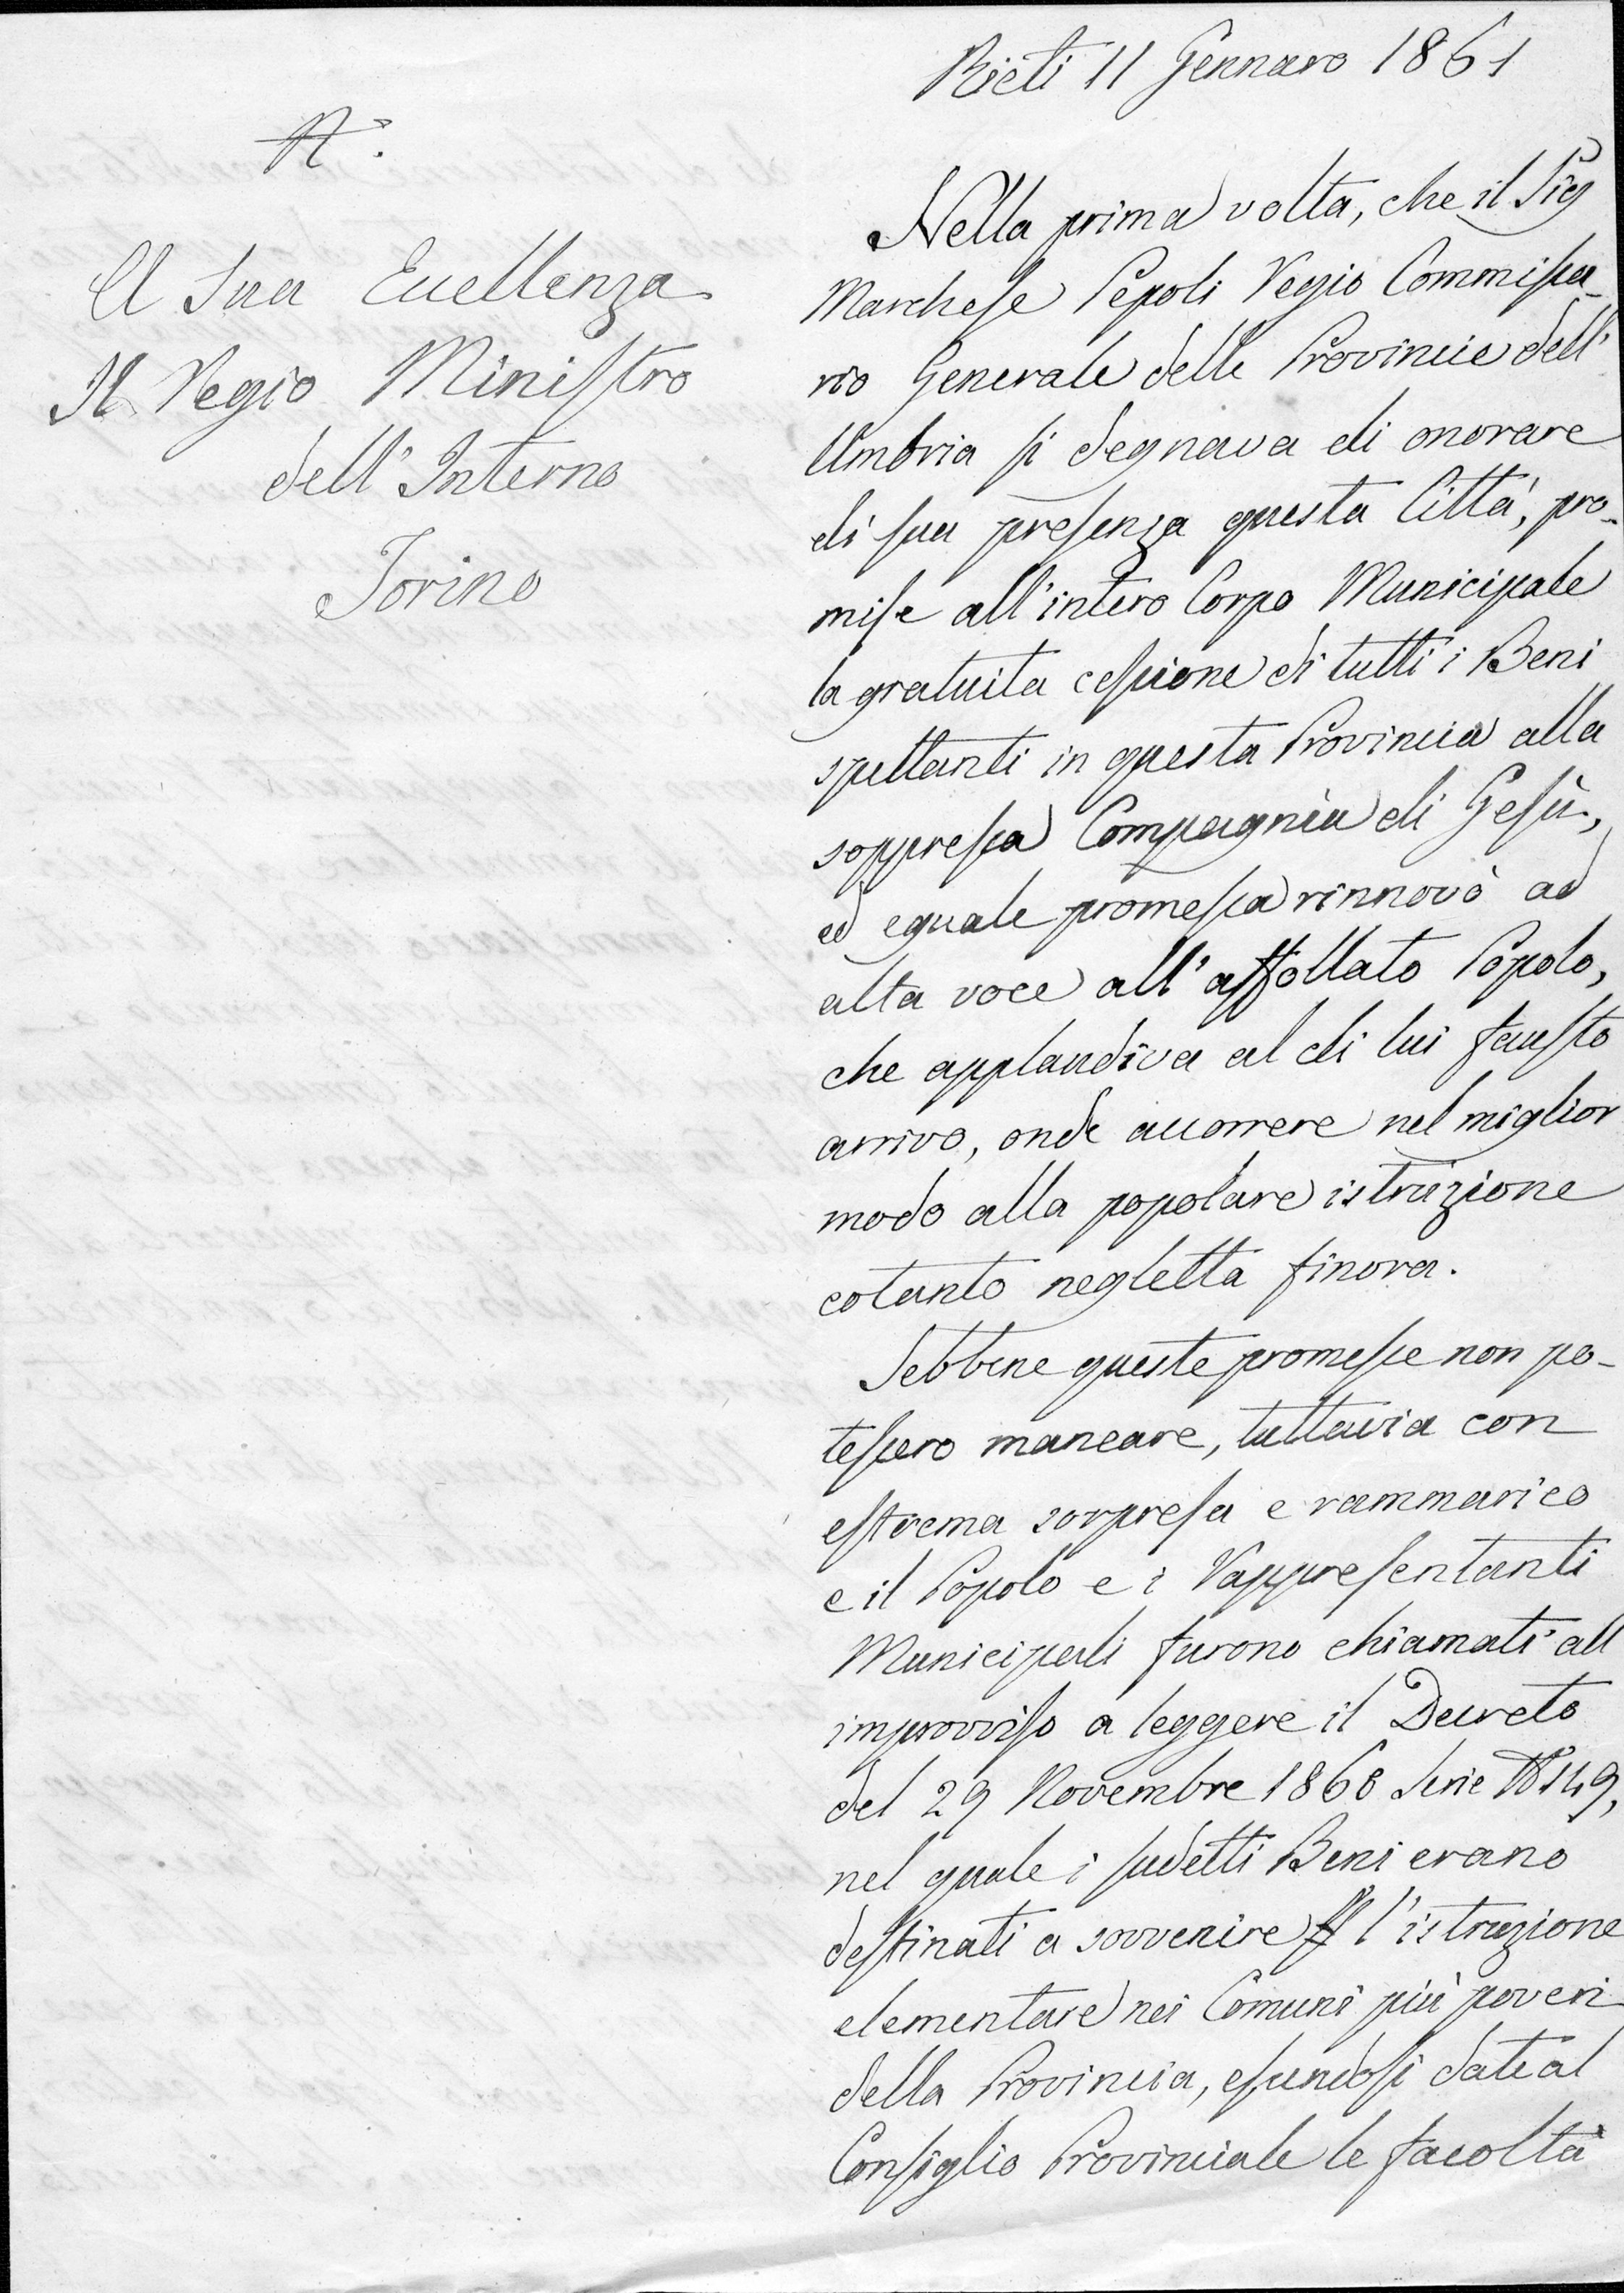 Rieti 11 Gennaro 1861
N.°
A Sua Eccellenza
Il Regio Ministro
dell'Interno
Torino
Nella prima volta, che il Sig
Marchese Pepoli Regio Commissa-
rio Generale delle Provincie dell'
Umbria si degnava di onorare
di sua presenza questa Città, pro-
mise all'intero Corpo Municipale
la gratuita cessione di tutti i Beni
spettanti in questa Provincia alla
soppressa Compagnia di Gesù,
ed eguale promessa rinnovò ad
alta voce all'affollato Popolo,
che applaudiva al di lui fausto
arrivo, onde accorrere nel miglior
modo alla popolare istruzione
cotanto negletta finora.
Sebbene queste promesse non po-
tessero mancare, tuttavia con
estrema sorpresa e rammarico
e il Popolo e i Rappresentanti
Municipali furono chiamati all
improvviso a leggere il Decreto
del 29 Novembre 1860 Serie N° 149,
nel quale i sudetti Beni erano
destinati a sovvenire l'istruzione
elementare nei Comuni più poveri
della Provincia, essendosi date al
Consiglio Provinciale le facoltà